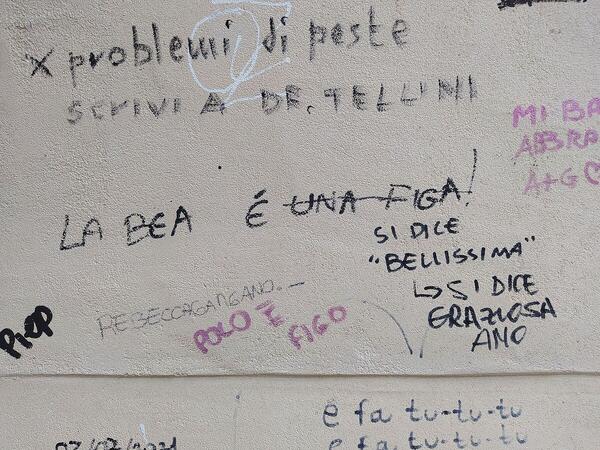 x problemi di peste
SCRIVI A DR. TELLINI
MI BA
ABBRA
A+G
LA BEA É UNA FIGA!
SI DICE
"BELLISSIMA"
↳ SI DICE
GRAZIOSA
ANO
PiOP
REBECCAGANGANO.
POLO É
FIGO
e fa tu-tu-tu
e fa tu-tu-tu